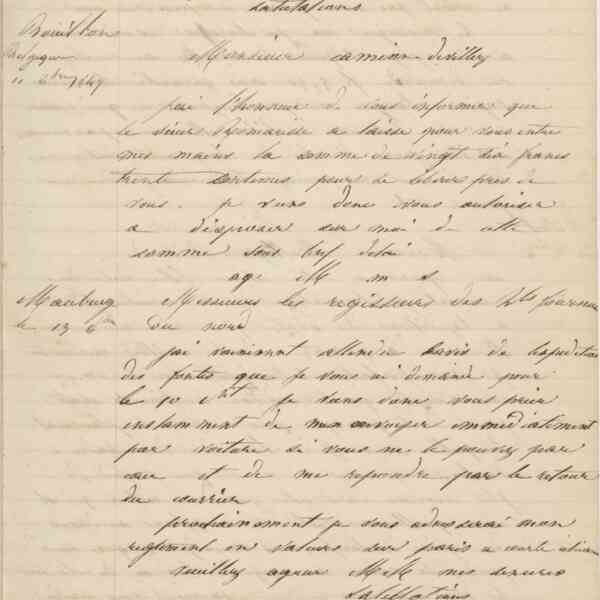 salutations
Bouillon
Belgique
11 Xbre 1847
Monsieur camion devilley
j'ai l'honneur de vous informer que
le sieur Romarisse a laisse pour vous entre
mes mains la somme de vingt dix francs
trente centimes pour se liberer pres de
vous. je viens donc vous autoriser
a disposer sur moi de cette
somme sous bref delai
ag. M m s
Maubeug
le 13 Xbre
Messieurs les regisseurs des hts fourneaux
du nord
j'ai vainement attendu l'avis de l'expedition
des fontes que je vous ai demandé pour
le 10 ct je viens donc vous prier
instamment de men envoyer immediatement
par voiture si vous ne le pouvez par
eau et de me repondre par le retour
du courrier
prochainement je vous adresserai mon
reglement en valeurs sur paris a courte
veuillez agreer MM mes sinceres
salutations